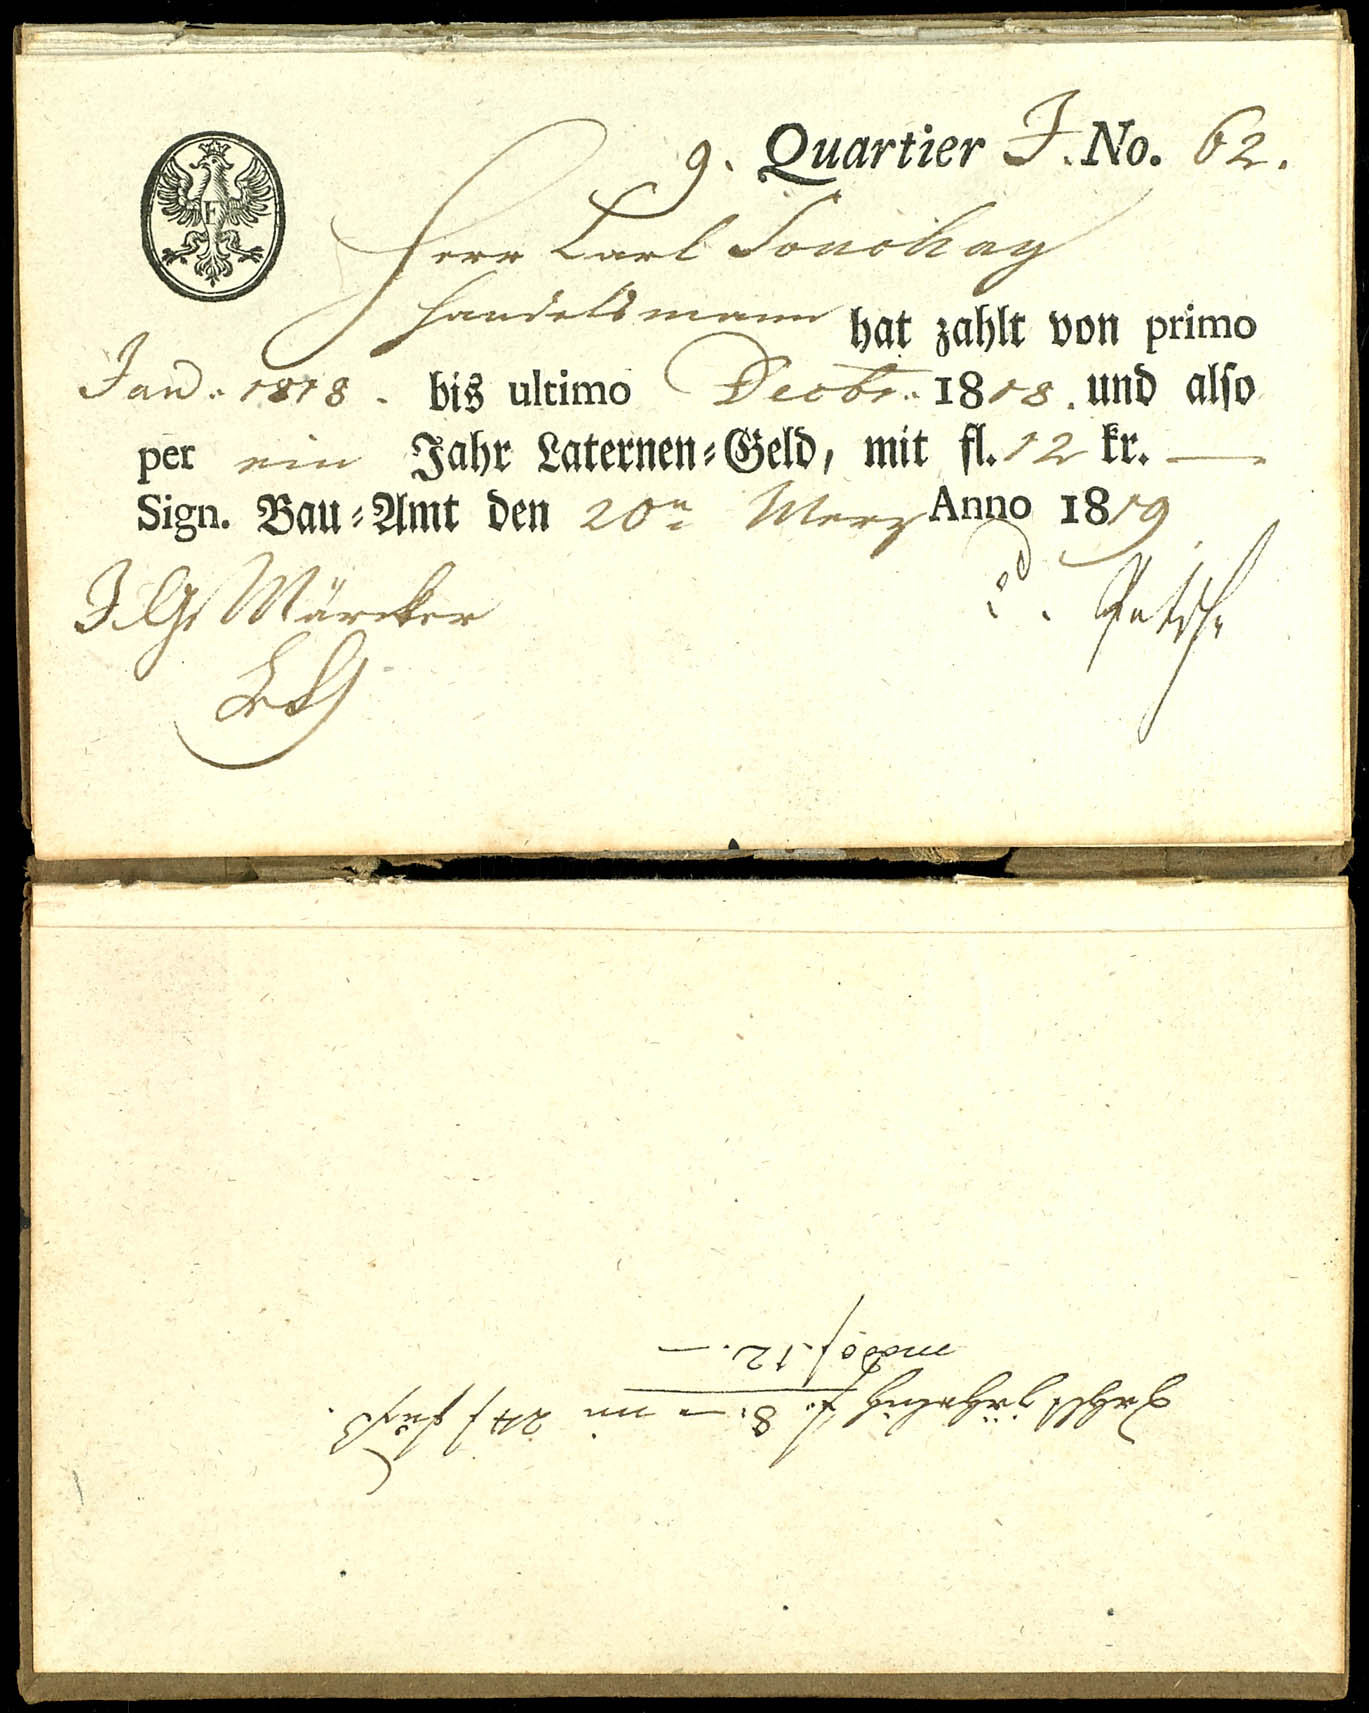 9. Quartier J. No. 62.
F
Herr Carl Souchay
Handelsmann hat zahlt von primo
Jan: 1818. bis ultimo Decbr: 1818. und also
per ein Jahr Laternen-Geld, mit fl. 12 kr. —
Sign. Bau-Amt den 20n Merz Anno 1819
J. G. Märcker
jährlich f. 8. — im 24 f fuß.
macht f. 12. —